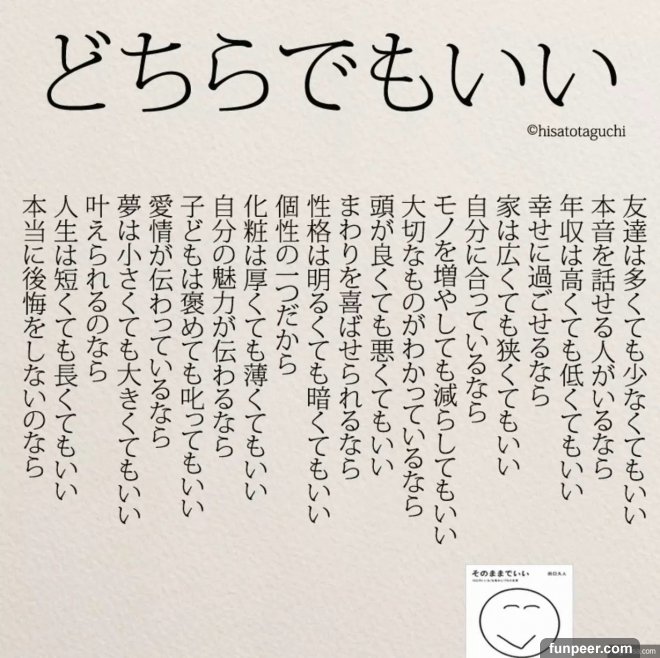 どちらでもいい
©hisatotaguchi
友達は多くても少なくてもいい
本音を話せる人がいるなら
年収は高くても低くてもいい
幸せに過ごせるなら
家は広くても狭くてもいい
自分に合っているなら
モノを増やしても減らしてもいい
大切なものがわかっているなら
頭が良くても悪くてもいい
まわりを喜ばせられるなら
性格は明るくても暗くてもいい
個性の一つだから
化粧は厚くても薄くてもいい
自分の魅力が伝わるなら
子どもは褒めても叱ってもいい
愛情が伝わっているなら
夢は小さくても大きくてもいい
叶えられるのなら
人生は短くても長くてもいい
本当に後悔をしないのなら
そのままでいい
田口久人
funpeer.com